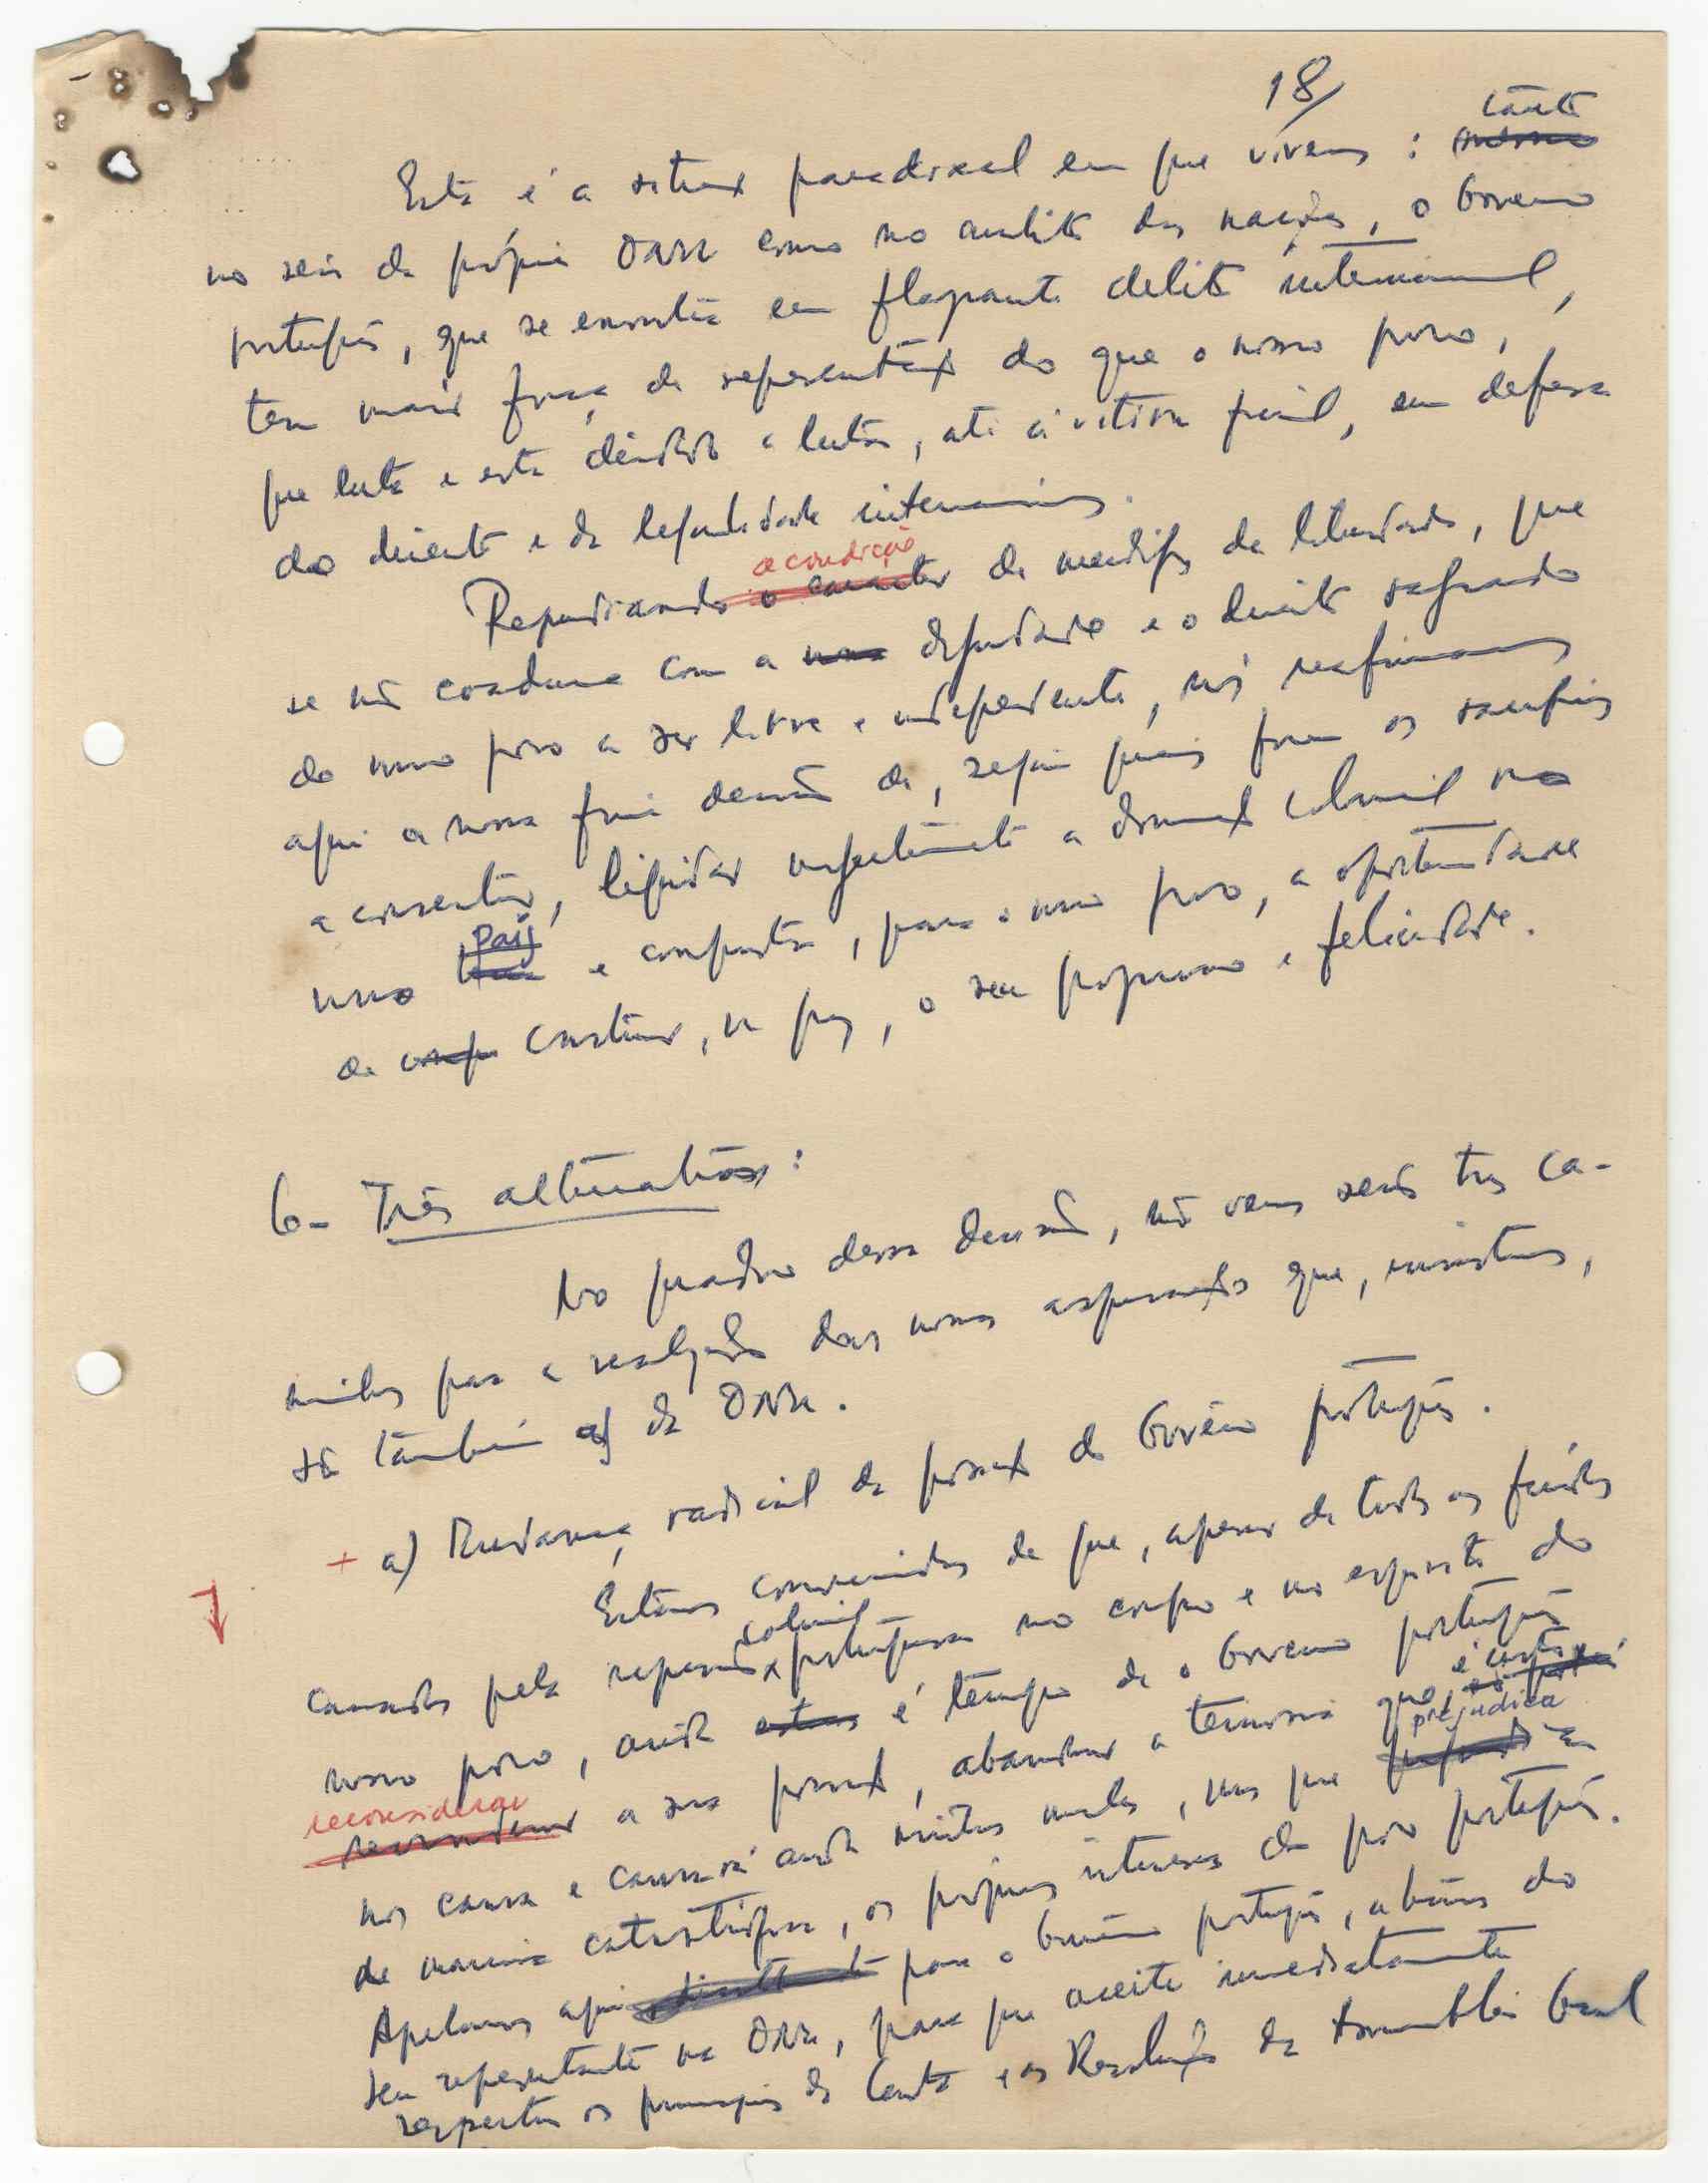 18/
tanto
Esta é a situação paradoxal em que vivemos : mesmo
no seio da própria ONU como no ambito das nações, o Governo
português, que se encontra em flagrante delito internacional,
tem mais força de representação do que o nosso povo,
que luta e está decidido a lutar, até à vitória final, em defesa
do direito e da legalidade internacionais.
a condição
Repudiando o caracter de mendigos da liberdade, que
se não coaduna com a nossa dignidade e o direito sagrado
do nosso povo a ser livre e independente, nós reafirmamos
aqui a nossa firme decisão de, sejam quais forem os sacrifícios
a consentir, liquidar urgentemente a dominação colonial no
País
nosso e conquistar, para o nosso povo, a oportunidade
de construir, na paz, o seu progresso e felicidade.
6- Três alternativas:
No quadro dessa decisão, não vemos senão tres ca-
minhos para a realização das nossas aspirações que, insistimos,
são também as da ONU.
+ a) Mudança radical da posição do Govêrno português.
Estamos convencidos de que, apesar de todos os
colonial
causados pela repressão portuguesa no corpo e no espirito do
nosso povo, ainda estamos é tempo de o Governo português
reconsiderar
a sua posição, abandonar a teimosia que, é certo
prejudica
nos causa e causará ainda muitos males, mas que
de maneira catastrófica, os próprios interesses do povo português.
Apelamos aqui para o Governo português, através do
seu representante na ONU, para que aceite imediatamente
respeitar os princípios da Carta e as Resoluções da Assembleia Geral